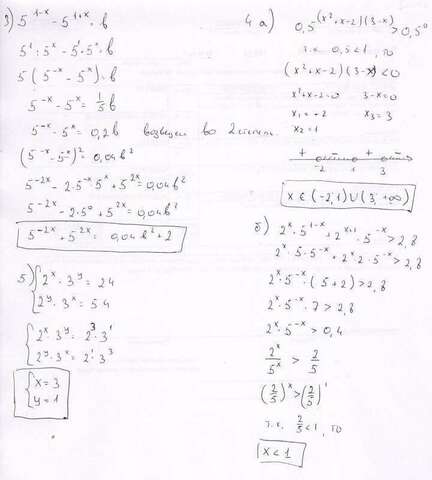 3) 5^(1-x) - 5^(1+x) = b
5¹ : 5ˣ - 5¹·5ˣ = b
5 ( 5^(-x) - 5ˣ ) = b
5^(-x) - 5ˣ = 1/5 b
5^(-x) - 5ˣ = 0,2b возведем во 2 степень.
(5^(-x) - 5ˣ)² = 0,04b²
5^(-2x) - 2·5^(-x)·5ˣ + 5^(2x) = 0,04b²
5^(-2x) - 2·5⁰ + 5^(2x) = 0,04b²
5^(-2x) + 5^(2x) = 0,04b² + 2
5) { 2ˣ · 3ʸ = 24
2ʸ · 3ˣ = 54
{ 2ˣ · 3ʸ = 2³ · 3¹
2ʸ · 3ˣ = 2¹ · 3³
{ x = 3
y = 1
4 а) 0,5^((x²+x-2)(3-x)) > 0,5⁰
т.к. 0,5<1, то
(x²+x-2)(3-x) < 0
x²+x-2=0 3-x=0
x₁ = -2 x₃ = 3
x₂ = 1
+ - + -
-2 1 3
x ∈ (-2,1) ∪ (3, +∞)
б) 2ˣ · 5^(1-x) + 2^(x+1) · 5^(-x) > 2,8
2ˣ · 5 · 5^(-x) + 2ˣ · 2 · 5^(-x) > 2,8
2ˣ · 5^(-x) · (5+2) > 2,8
2ˣ · 5^(-x) · 7 > 2,8
2ˣ · 5^(-x) > 0,4
2ˣ/5ˣ > 2/5
(2/5)ˣ > (2/5)¹
т.к. 2/5 < 1, то
x < 1